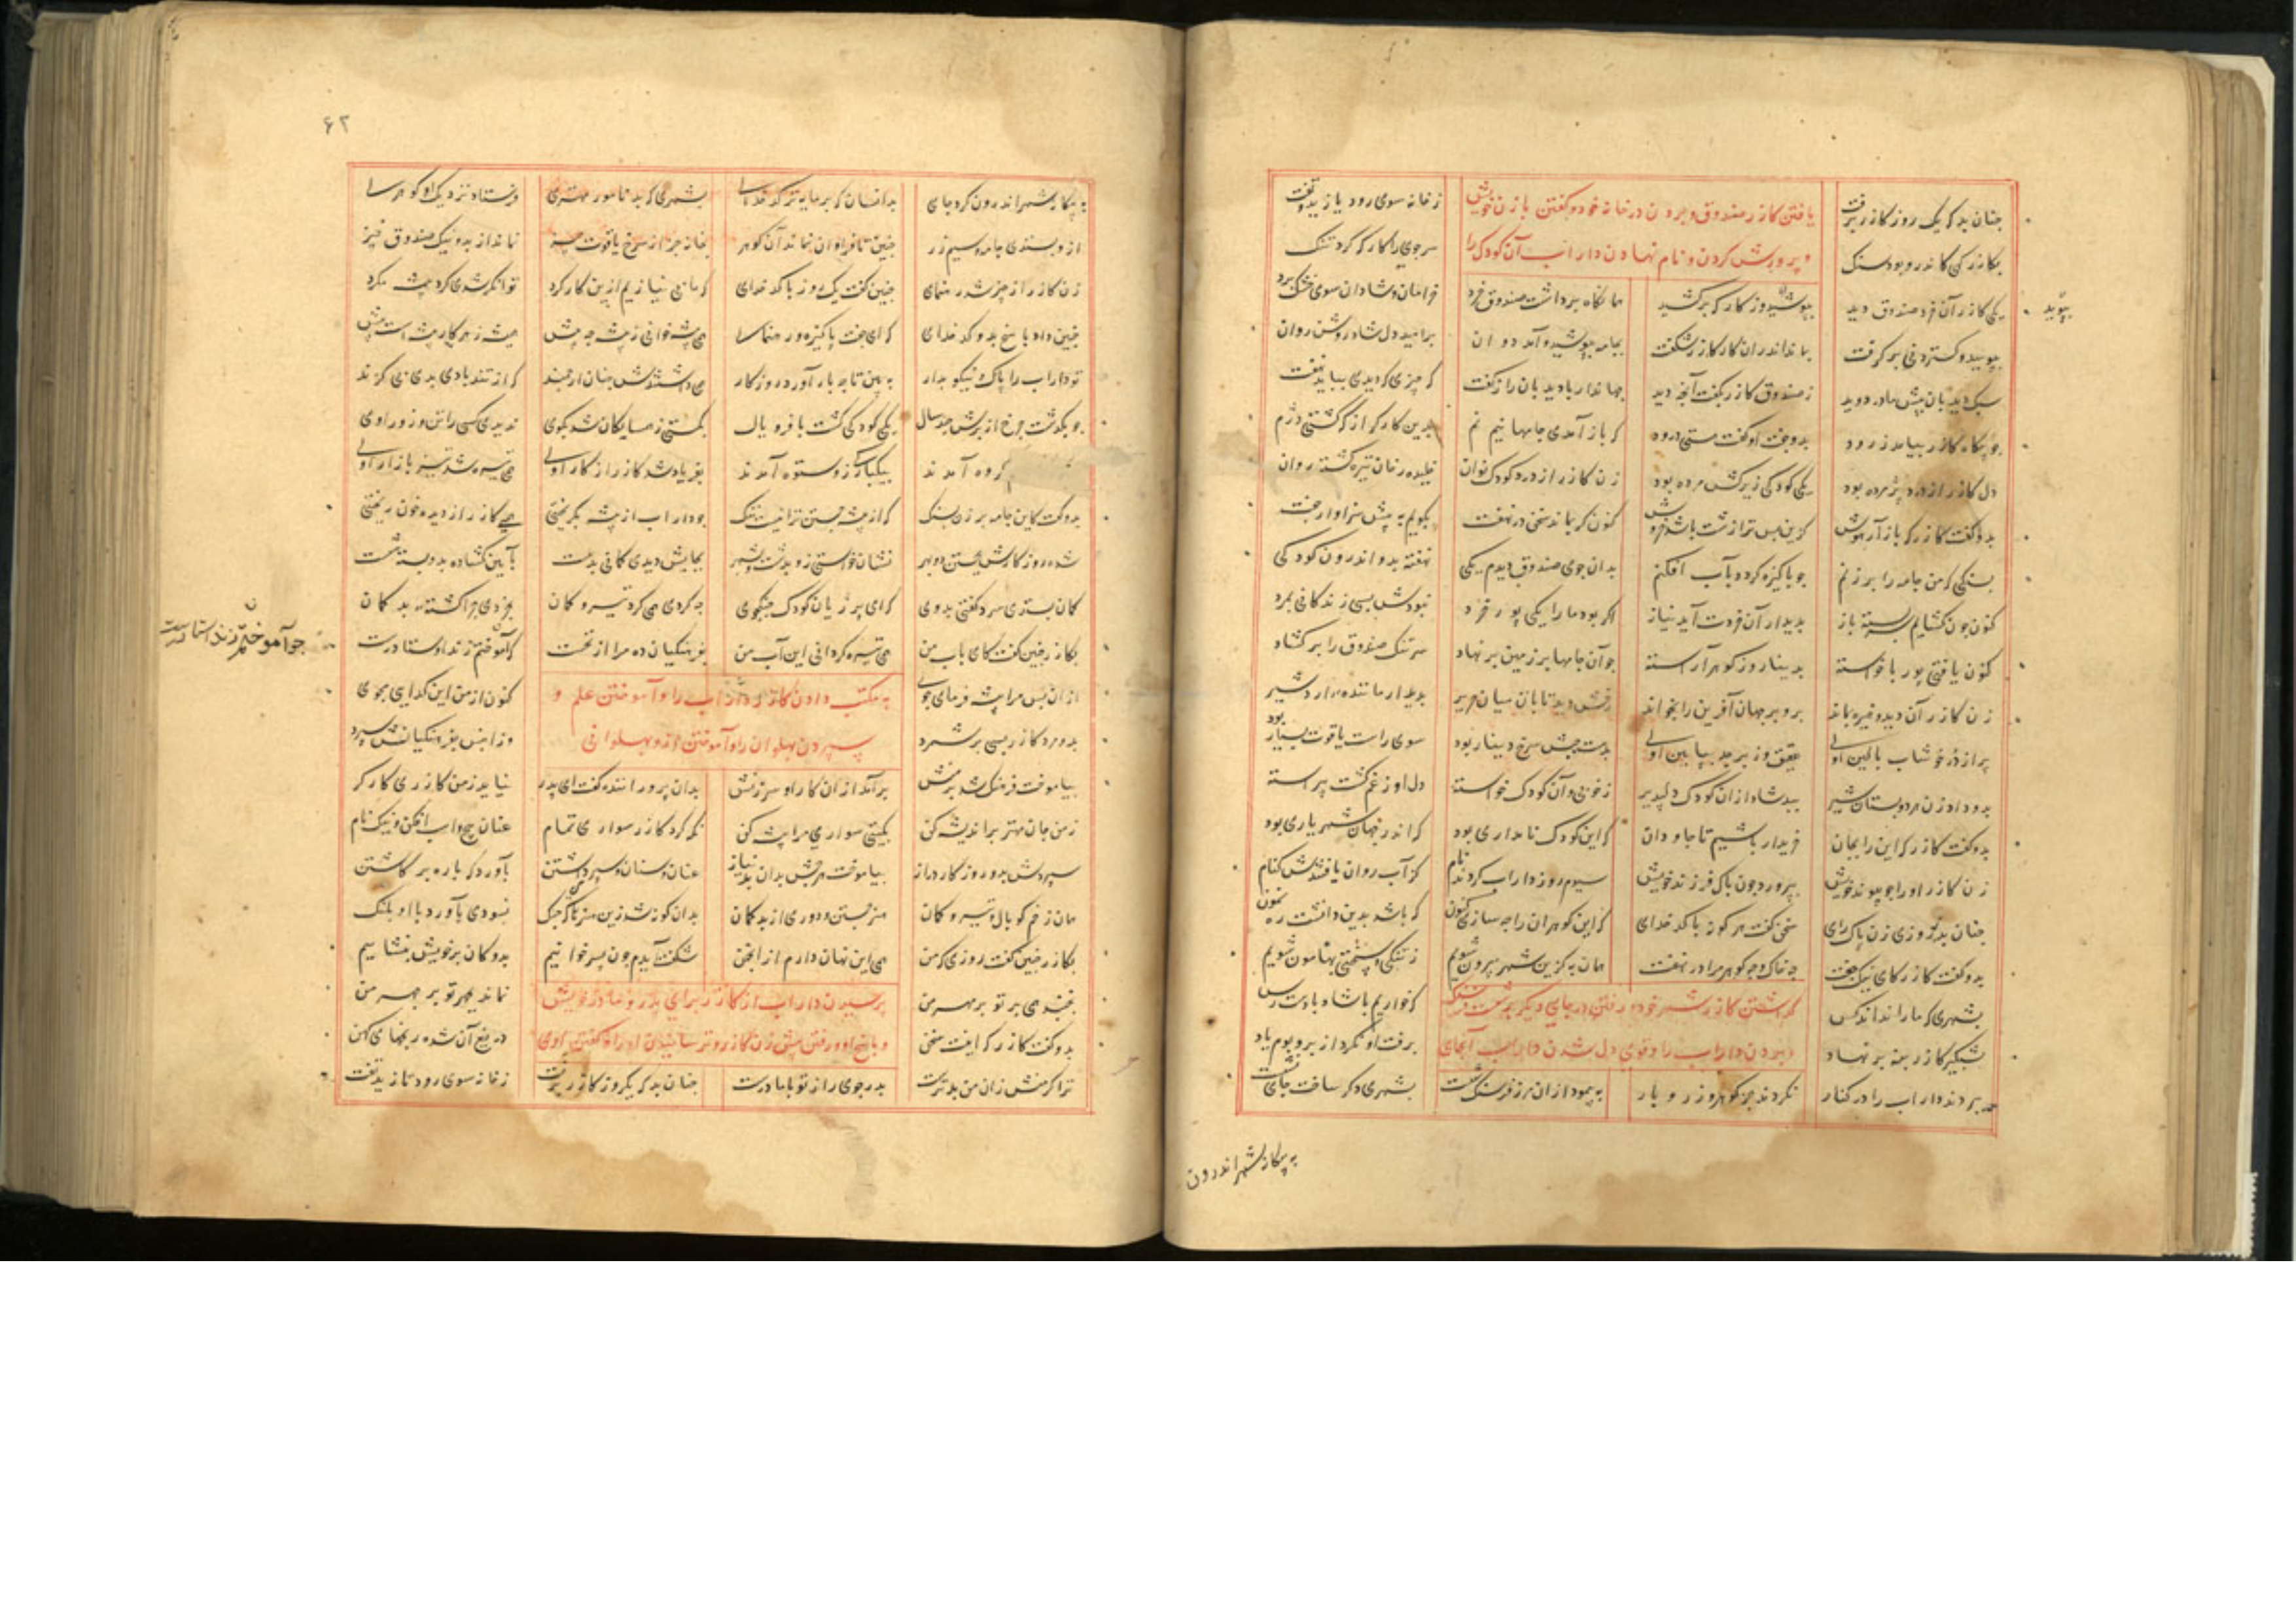 یافتن کازر صندوق و بردن در خانه خود و گفتن با زن خویش
و پرورش کردن و نام نهادن داراب آن کودک را
چنان بد که یک روز کازر برفت ز خانه سوی رود یازید تفت
یکی کازر آن خرد صندوق دید بپوشید وز کارگه برکشید همانگاه برداشت صندوق خرد خرامان و شادان سوی خشک برد
بپویید
بپویید و گستردنی برگرفت بماند اندران کار کازر شگفت بجامه بپوشید و آمد دوان پرامید دل شاد و روشن روان
سبک دیدبان پیش مادر دوید ز صندوق کازر بگفت آنچه دید جهاندار با دیدبان راز گفت که چیزی که دیدی بباید نهفت
چو بیگاه کازر بیامد ز رود بدو جفت او گفت هستی درود که باز آمدی جامها نیم نم بدین کارکرد از که گشتی دژم
دل کازر از درد پژمرده بود یکی کودکی زیرکش مرده بود زن کازر از درد کودک نوان خلیده رخان تیره گشته روان
بدو گفت کازر که باز آر هوش کزین پس ترا زشت باشد خروش کنون گر بماند سخن در نهفت بگویم به پیش سزاوار جفت
بسنگی که من جامه را بر زنم چو پاکیزه گردد بآب افکنم بدان جوی صندوق دیدم یکی نهفته بدو اندرون کودکی
کنون چون گشایم سر بسته باز بدیدار آن خردت آید نیاز اگر بود ما را یکی پور خرد نبودش بسی زندگانی بمرد
کنون یافتی پور با خواسته بدینار وز گوهر آراسته چو آن جامها بر زمین بر نهاد سر تنگ صندوق را برگشاد
زن کازر آن دید و خیره بماند برو بر جهان آفرین را بخواند رخش دید تابان میان حریر بدیدار ماننده اردشیر
پر از در خوشاب بالین اوی عقیق و زبرجد بپایین اوی بدست چپش سرخ دینار بود سوی راست یاقوت بسیار بود
بدو داد زن مر دو پستان شیر ببد شاد ازان کودک دلپذیر ز خوبی آن کودک و خواسته دل او ز غم گشت پیراسته
بدو گفت کازر که این را بجان خریدار باشیم تا جاودان که این کودک نامداری بود که اندر جهان شهریاری بود
زن کازر او را چو پیوند خویش بپرورد چون پاک فرزند خویش سیوم روز داراب کردند نام کز آب روان یافتندش کنام
چنان بد که روزی زن پاک رای سخن گفت هر گونه با کدخدای که این گوهران را چه سازی کنون که باشد بدین دانشت رهنمون
بدو گفت کازر که ای نیک جفت چه خاک و چه گوهر مرا در نهفت همان به کزین شهر بیرون شویم ز تنگی و سختی بهامون شویم
بشهری که ما را ندانند کس که خواریم یا شاد با دسترس
شبگیر کازر بنه بر نهاد برفت او نکرد از بر و بوم یاد
ببردند داراب را در کنار نکردند جز گوهر و زر و بار بپیمود ازان مرز فرسنگ شست بشهری دگر ساخت جای نشست
به بیگانه شهر اندرون
۶۲
به بیگانه شهر اندرون کرد جای بدانسان که پرمایه تر کدخدای بشهری که بد نامور مهتری فرستاد نزدیک او گوهری
ازو بستدی جامه و سیم و زر چنین تا فراوان نماند آن گهر بخانه جز از سرخ یاقوت چیز نماند از بد و نیک صندوق نیز
زن کازر از چیز شد رهنمای چنین گفت یک روز با کدخدای که ما بی نیازیم ازین کارکرد توانگر شدی گرد پیشه مگرد
چنین داد پاسخ بدو کدخدای که ای جفت پاکیزه و رهنمای همی پیشه خوانی ز پیشه چه بیش همیشه ز هر کار پیشه است پیش
تو داراب را پاک و نیکو بدار ببین تا چه بار آورد روزگار همی داشتندش چنان ارجمند که از تند بادی بدی بی گزند
چو بگذشت چرخ از برش چند سال یکی کودکی گشت با فر و یال بکشتی ز همسایگان شد بکوی ندیدی کسی را تن و زور اوی
گروه آمدند بیکبارگی زو ستوه آمدند بفریاد شد کازر از کار اوی همی تیره شد تیز بازار اوی
بدو گفت کاین جامه بر زن بسنگ که از پیشه جستن ترا نیست ننگ چو داراب از پیشه بگریختی همی کازر از دیده خون ریختی
شده روز کارش بجستن دو بهر نشان خواستی زو بدشت و بشهر بجایش دیدی کمانی بدست بآیین گشاده بدو بسته شست
کمان بستدی سرد گفتی بدوی که ای پر زیان کودک جنگجوی چه گردی همی گرد تیر و کمان بخردی چرا گشته بدگمان
بکازر چنین گفت کای باب من همی تیره گردانی این آب من بفرهنگیان ده مرا از نخست که آموختم زند و استا درست
چو آموختم زند استا درست
ازان پس مرا پیشه فرمای جوی کنون از من این کدخدایی مجوی
بمکتب دادن کازر داراب را و آموختن علم و
سپردن پهلوان را و آموختن ازو پهلوانی
بدو مرد کازر بسی بر شمرد وزان پس بفرهنگیانش سپرد
بیاموخت فرهنگ و شد برمنش برآمد ازان کار و سرزنش بدان پروراننده گفت ای پدر نیاید ز من کازری کارگر
ز من جان مهتر پراندیشه کن بگیتی سواری مرا پیشه کن نگه کرد کازر سواری تمام عنان پیچ و اسب افکن و نیک نام
سپردش بدو روزگار دراز بیاموخت هر چش بدان بد نیاز عنان و سنان و سپر داشتن بآورد گه باره بر گاشتن
همان زخم کوپال و تیر و کمان هنر جستن و دوری از بدگمان بدان گونه شد زین هنرها که جنگ نسودی بآورد با او پلنگ
بکازر چنین گفت روزی که من همی این نهان دارم از انجمن شگفت آیدم چون پسر خوانیم بدوکان بر خویش بنشانیم
نجنبد همی بر تو بر مهر من نماند بچهر تو بر چهر من
پرسیدن داراب از کازر برای پدر و مادر خویش
بدو گفت کازر که اینت سخن دریغ آن شده رنجهای کهن
ترا گر منش زان من بدترست پدر جوی راز تو با مادرست چنان بد که یکروز کازر برفت ز خانه سوی رود یازید تفت